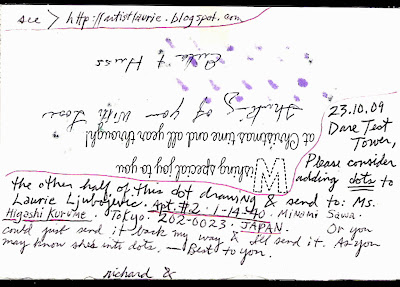 see > http://artistlaurie.blogspot.com
Wishing special joy to you
at Christmas time and all year through!
Thinking of you with Love
23.10.09
Dare Test
Tower,
Please consider
adding dots to
the other half of this dot drawing & send to: Ms.
Laurie Ljubojevic. Apt. #2. 1-14-40. Minami Sawa.
Higashi Kurume. Tokyo. 202-0023. JAPAN. Or you
could just send it back my way & I'll send it. As you
may know she's into dots. — Best to you.
richard &